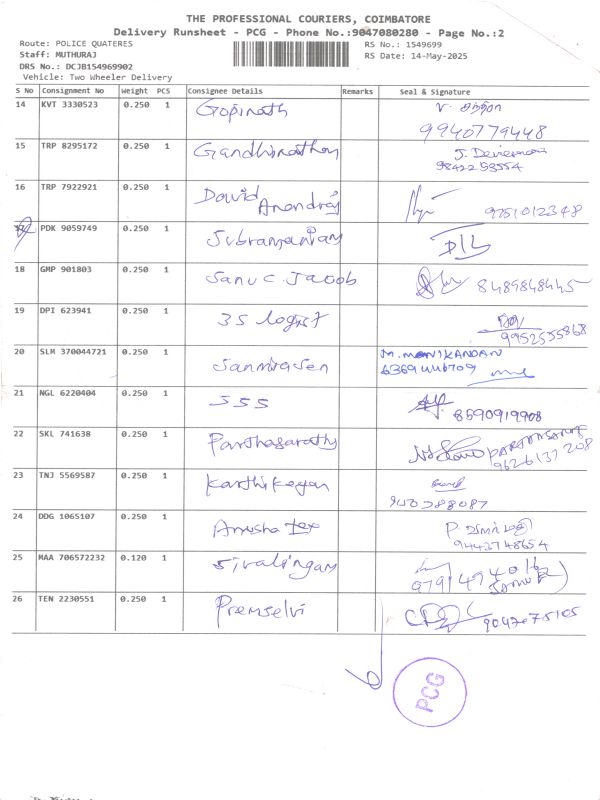 THE PROFESSIONAL COURIERS, COIMBATORE
Delivery Runsheet - PCG - Phone No.:9047080280 - Page No.:2
Route: POLICE QUATERES
RS No.: 1549699
Staff: MUTHURAJ
RS Date: 14-May-2025
DRS No.: DCJB154969902
Vehicle: Two Wheeler Delivery
S No Consignment No Weight PCS Consignee Details Remarks Seal & Signature
14 KVT 3330523 0.250 1 Gopinath
9940779448
15 TRP 8295172 0.250 1 Gandhimathy
9842253554
16 TRP 7922921 0.250 1 David
Anandraj 9751012348
PDK 9059749 0.250 1 Subramaniam
18 GMP 901803 0.250 1 Sanu C. Jacob 8489848445
19 DPI 623941 0.250 1 3S logist
9952555868
20 SLM 370044721 0.250 1 M. MANIKANDAN
6369446709
21 NGL 6220404 0.250 1 SSS 8590919908
22 SKL 741638 0.250 1 Parthasarathy
9626137208
23 TNJ 5569587 0.250 1 Karthikeyan
24 DDG 1065107 0.250 1 Anusha Tex
9442748654
25 MAA 706572232 0.120 1 Sivalingam
26 TEN 2230551 0.250 1 Premselvi 9042075105
PCG